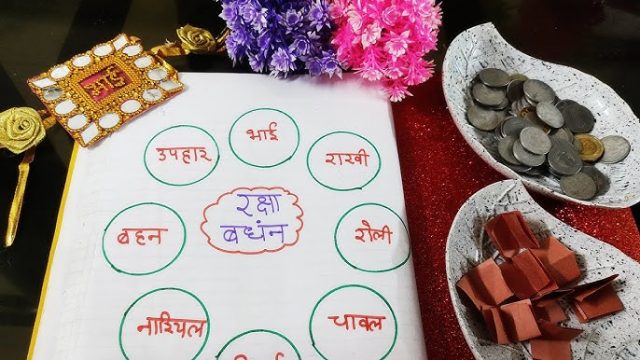 भाई
भाई
उपहार
राखी
रक्षा
बधंन
बहन
रौली
नारियल
चावल